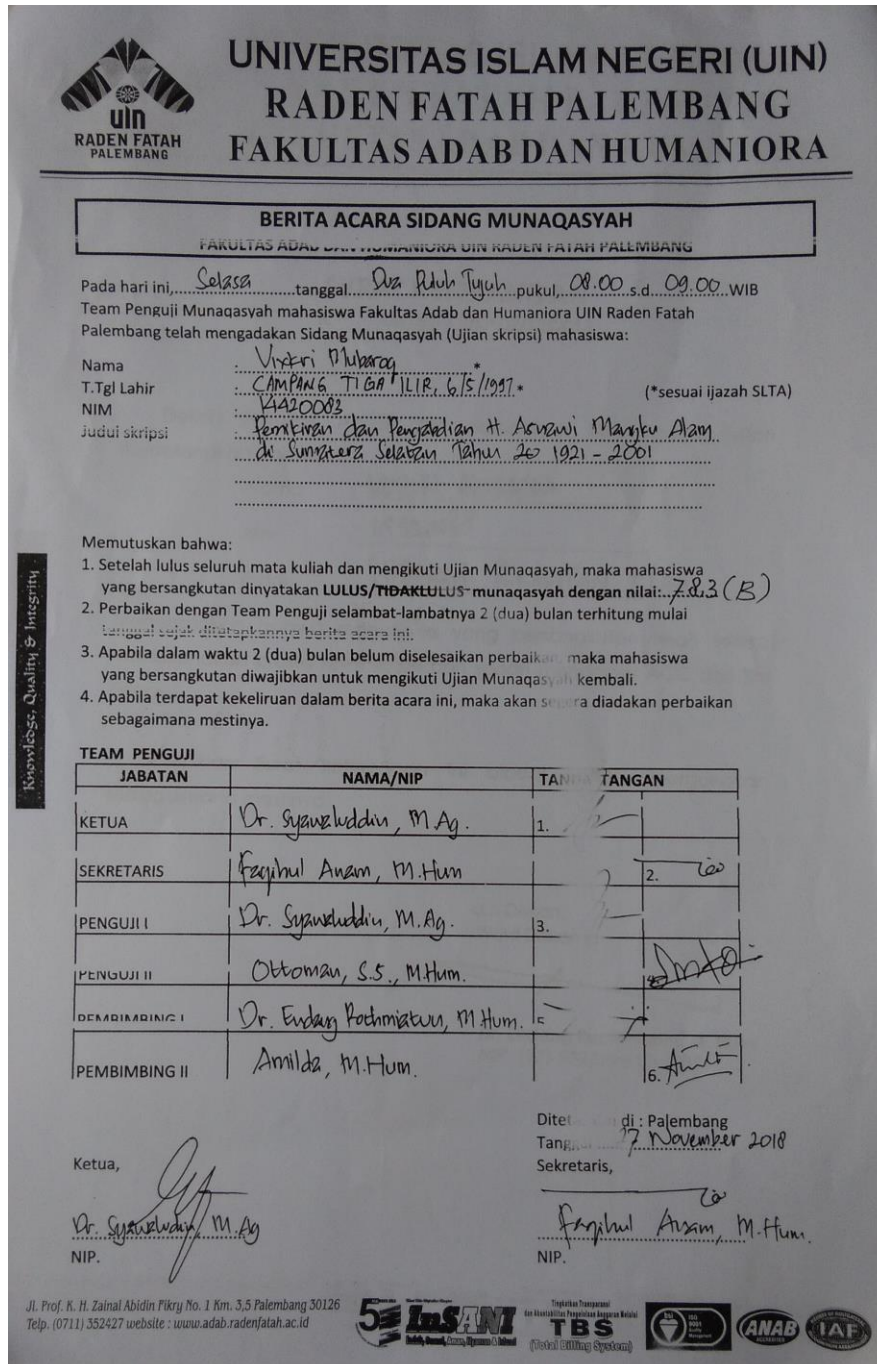 UNIVERSITAS ISLAM NEGERI (UIN)
RADEN FATAH PALEMBANG
FAKULTAS ADAB DAN HUMANIORA
uin
RADEN FATAH
PALEMBANG
BERITA ACARA SIDANG MUNAQASYAH
FAKULTAS ADAB DAN HUMANIORA UIN RADEN FATAH PALEMBANG
Pada hari ini, Selasa tanggal Dua Puluh Tujuh pukul, 08.00 s.d 09.00 WIB
Team Penguji Munaqasyah mahasiswa Fakultas Adab dan Humaniora UIN Raden Fatah
Palembang telah mengadakan Sidang Munaqasyah (Ujian skripsi) mahasiswa:
Nama : Vixkri Mubaroq *
T.Tgl Lahir : CAMPANG TIGA ILIR, 6/5/1997 * (*sesuai ijazah SLTA)
NIM : 14420083
Judul skripsi : Pemikiran dan Pengabdian H. Asnawi Mangku Alam
di Sumatera Selatan Tahun 1921 - 2001
Memutuskan bahwa:
1. Setelah lulus seluruh mata kuliah dan mengikuti Ujian Munaqasyah, maka mahasiswa
yang bersangkutan dinyatakan LULUS/TIDAKLULUS munaqasyah dengan nilai: 78,3 (B)
2. Perbaikan dengan Team Penguji selambat-lambatnya 2 (dua) bulan terhitung mulai
tanggal sejak ditetapkannya berita acara ini.
3. Apabila dalam waktu 2 (dua) bulan belum diselesaikan perbaikan, maka mahasiswa
yang bersangkutan diwajibkan untuk mengikuti Ujian Munaqasyah kembali.
4. Apabila terdapat kekeliruan dalam berita acara ini, maka akan segera diadakan perbaikan
sebagaimana mestinya.
Knowledge, Quality & Integrity
TEAM PENGUJI
JABATAN NAMA/NIP TANDA TANGAN
KETUA Dr. Syawaluddin, M.Ag. 1.
SEKRETARIS Faqihul Anam, M.Hum 2.
PENGUJI I Dr. Syawaluddin, M.Ag. 3.
PENGUJI II Ottoman, S.S., M.Hum.
PEMBIMBING I Dr. Endang Rochmiatun, M.Hum. 5
PEMBIMBING II Amilda, M.Hum. 6.
di : Palembang
7 November 2018
Ketua,
Sekretaris,
Dr. Syawaludin, M.Ag
Faqihul Anam, M.Hum.
NIP.
NIP.
Jl. Prof. K. H. Zainal Abidin Fikry No. 1 Km. 3,5 Palembang 30126
Telp. (0711) 352427 website : www.adab.radenfatah.ac.id
5 InSANI
Indah, Damai, Aman, Nyaman & Islami
Tingkatkan Transparansi
dan Akuntabilitas Pengelolaan Anggaran Melalui
TBS
(Total Billing System)
ISO
9001
ANAB
IAF